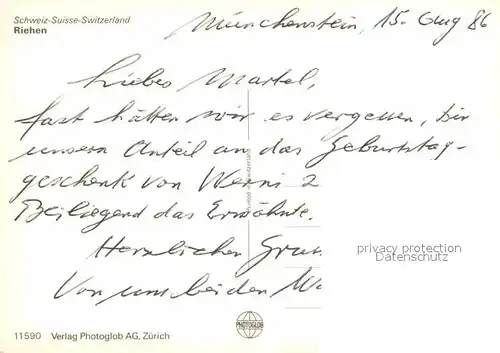 Schweiz-Suisse-Switzerland
Riehen
Münchenstein, 15. Aug 86
Liebes Martel,
fast hätten wir es vergessen, Dir
unsern Anteil an das Geburtstag-
geschenk von Werni 2
Beiliegend das Erwähnte.
Herzlichen Gruss
Von uns beiden
privacy protection
by
11590 Verlag Photoglob AG, Zürich
PHOTOGLOB